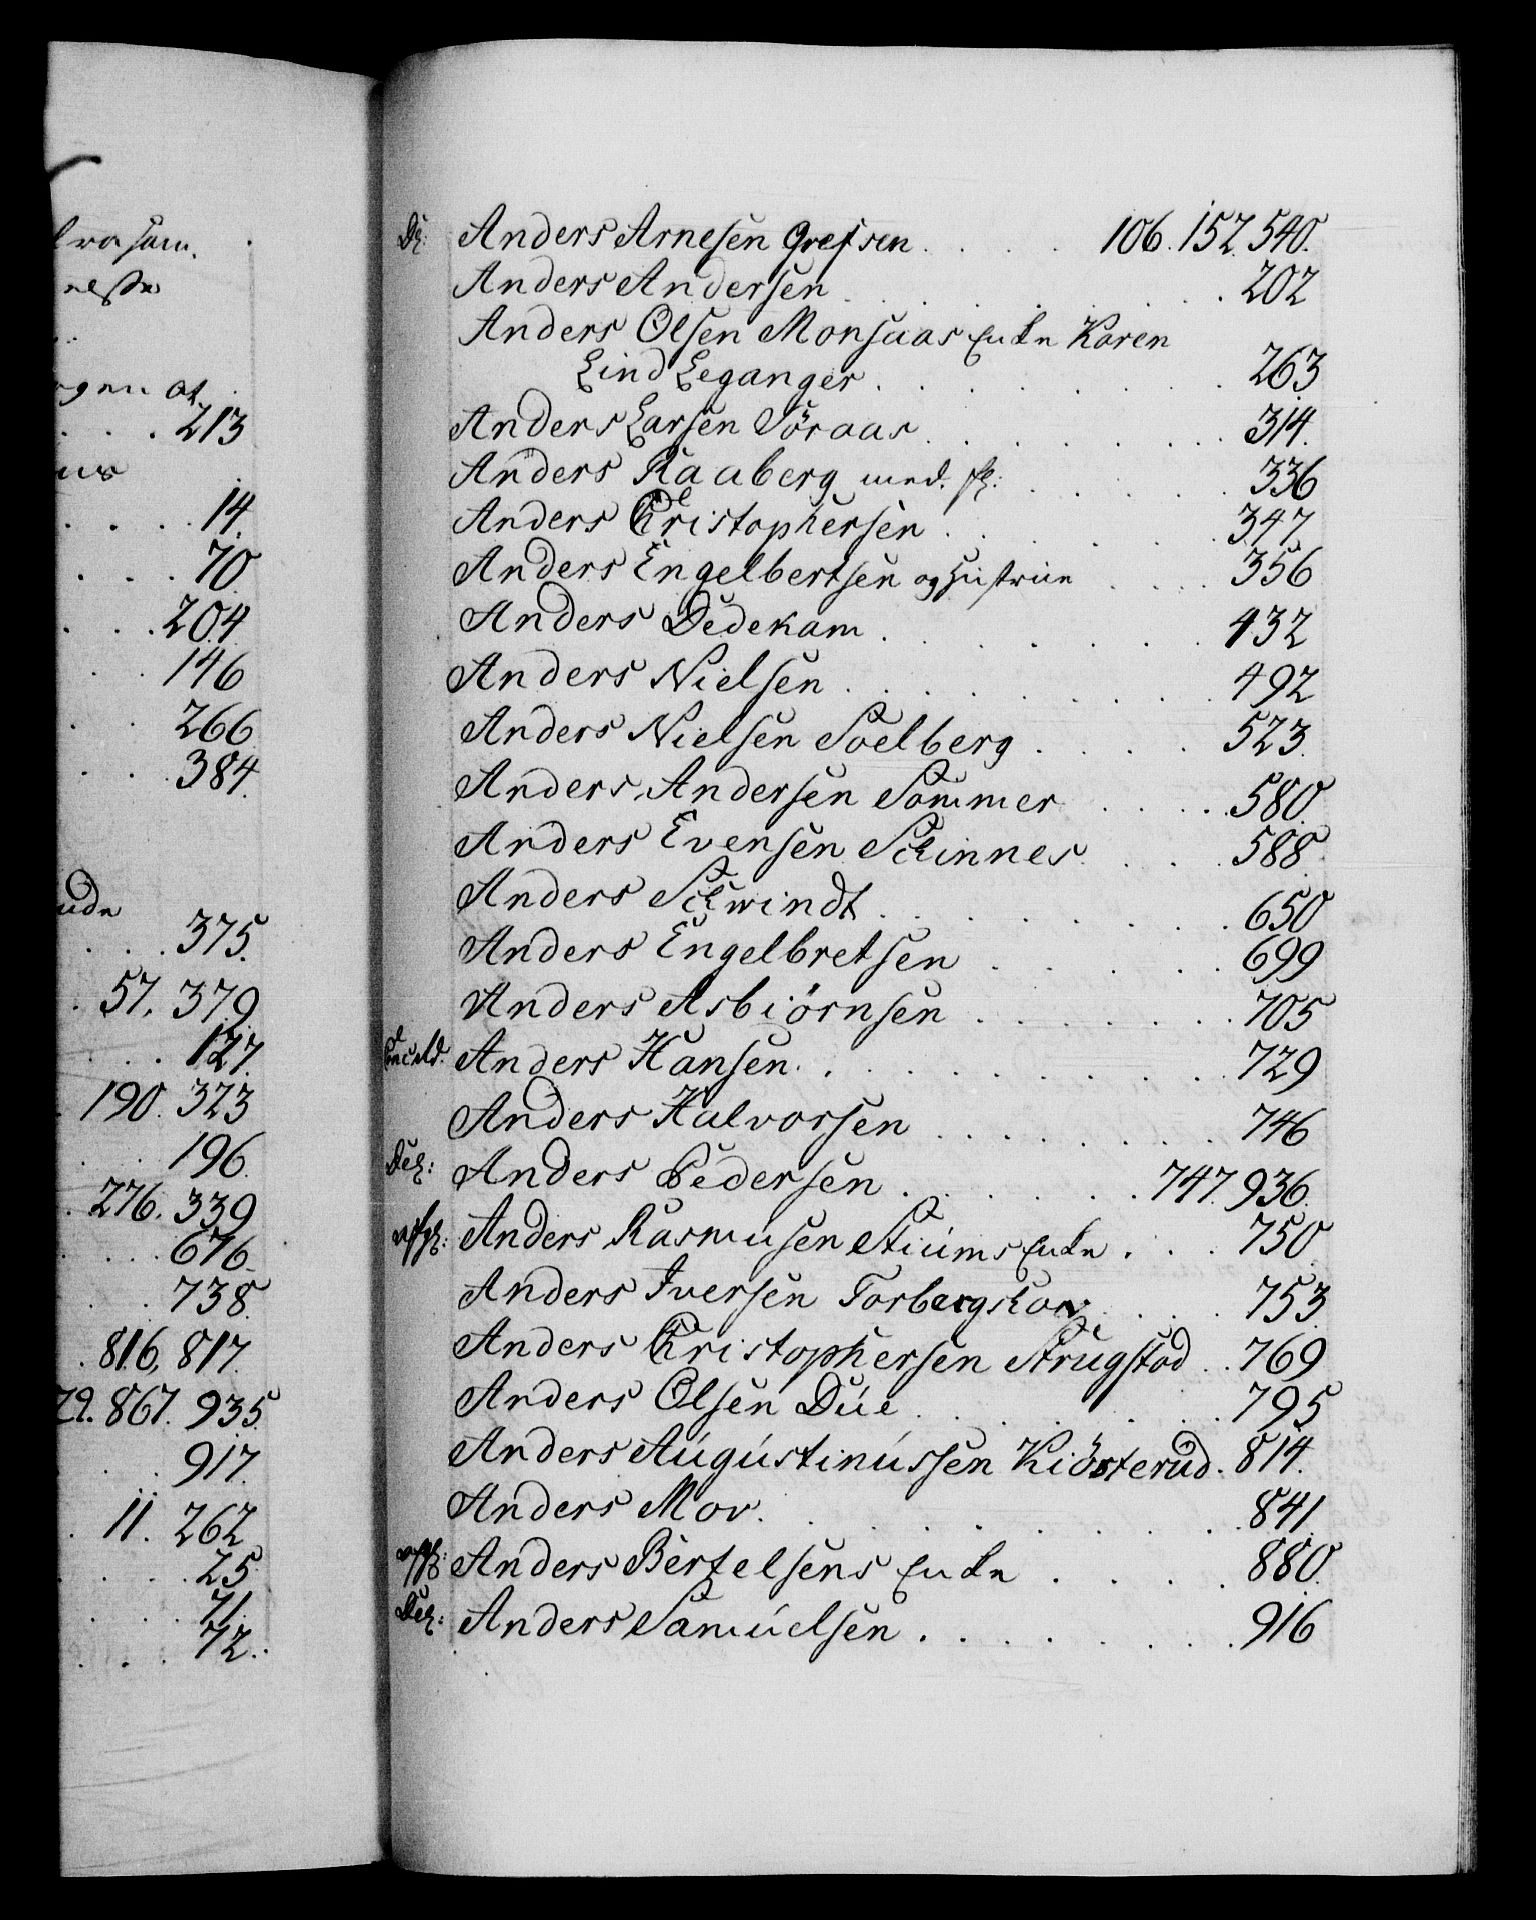 213
14.
70
204
146
266
384.
375.
57. 379
127.
190. 323
196.
276. 339
676
738
816. 817.
29. 867. 935
917.
11. 262
25
71.
72.
Anders Arnesen Grefsen . . . . . 106. 152. 540.
Anders Andersen . . . . . . 202
Anders Olsen Monsaas Enke Karen
Lind Leganger . . . . . . 263
Anders Larsen Söraas . . . . . . 314.
Anders Raaberg med fl: . . . . . 336
Anders Christophersen . . . . . . 347.
Anders Engelbertsen og Hustrue . . . . 356
Anders Dedekam . . . . . . 432
Anders Nielsen . . . . . . . . 492
Anders Nielsen Soelberg . . . . . 523
Anders Andersen Sommer . . . . . 580.
Anders Evensen Schinnes . . . . 588
Anders Schwindt . . . . . . . 650
Anders Engelbretsen . . . . . . 699
Anders Asbiörnsen . . . . . . . 705
Anders Hansen . . . . . . . . 729
Anders Halvorsen . . . . . . . 746
Del: Anders Pedersen . . . . . . 747. 936.
Anders Rasmusen Stiúms Enke . . . 750
Anders Iversen Torbergskov . . . . 753
Anders Christophersen Strugstad . . 769
Anders Olsen Dúe . . . . . . . 795
Anders Aúgústinússen Kiösterud . 814.
Anders Mov. . . . . . . . . 841.
Anders Bertelsens Enke . . . . . 880.
Del: Anders Samúelsen . . . . . . . 916